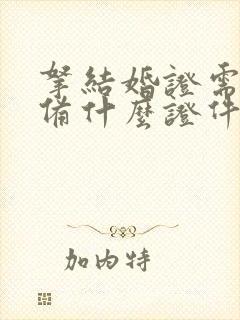 拏結婚證需
備什麼證件
加內特